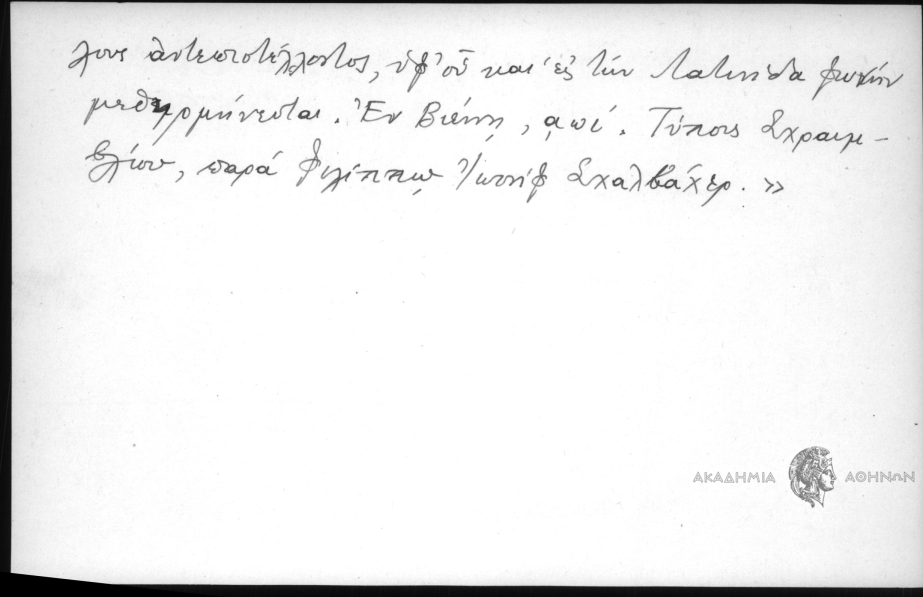 λους ἀντεπιστέλλοντος, ὑφ' οὗ καὶ ἐς τὴν Λατινίδα φωνὴν
μεθηρμήνευται. Ἐν Βιέννῃ, αωί. Τύποις Σχραιμ-
βλίου, παρὰ Φιλίππῳ Ἰωσὴφ Σχαλβάχερ. »
ΑΚΑΔΗΜΙΑ ΑΘΗΝΩΝ